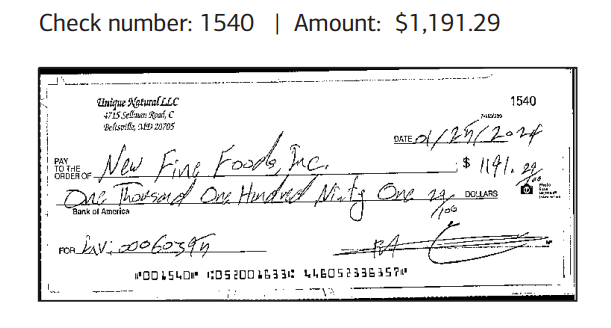 Check number: 1540 | Amount: $1,191.29
Unique Natural LLC
4715 Sellman Road, C
Beltsville, MD 20705
1540
DATE 01/25/2024
PAY TO THE ORDER OF New Fine Foods, Inc. $ 1191. 29/100
One Thousand One Hundred Ninty One 29/100 DOLLARS
Bank of America
FOR